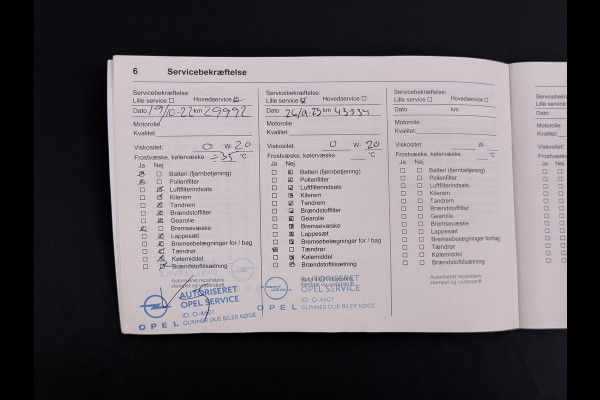 6 Servicebekræftelse
Servicebekræftelse:
Lille service ☐ Hovedservice ☑
Dato 19/10-22 km 29992
Motorolie
Kvalitet:
Viskositet: 0 W- 20
Frostvæske, kølervæske ÷35 °C
Ja Nej
Batteri (fjernbetjening)
Pollenfilter
Luftfilterindsats
Kilerem
Tandrem
Brændstoffilter
Gearolie
Bremsevæske
Lappesæt
Bremsebelægninger for / bag
Tændrør
Kølemiddel
Brændstoftilsætning
Autoriseret reparatørs
stempel og underskrift
AUTORISERET
OPEL SERVICE
ID: O-4601
OPEL GUNNER DUE BILER KØGE
Servicebekræftelse:
Lille service ☑ Hovedservice ☐
Dato 26/9-23 km 43534
Motorolie
Kvalitet:
Viskositet: 0 W- 20
Frostvæske, kølervæske °C
Ja Nej
Batteri (fjernbetjening)
Pollenfilter
Luftfilterindsats
Kilerem
Tandrem
Brændstoffilter
Gearolie
Bremsevæske
Lappesæt
Bremsebelægninger for / bag
Tændrør
Kølemiddel
Brændstoftilsætning
stempel og underskrift
AUTORISERET
OPEL SERVICE
ID: O-4601
OPEL GUNNER DUE BILER KØGE
Servicebekræftelse:
Lille service ☐ Hovedservice ☐
Dato km
Motorolie
Kvalitet:
Viskositet: W-
Frostvæske, kølervæske °C
Ja Nej
Batteri (fjernbetjening)
Pollenfilter
Luftfilterindsats
Kilerem
Tandrem
Brændstoffilter
Gearolie
Bremsevæske
Lappesæt
Bremsebelægninger for/bag
Tændrør
Kølemiddel
Brændstoftilsætning
Autoriseret reparatørs
stempel og underskrift
Servicebekræ
Lille service
Dato
Motorolie
Kvalitet:
Viskositet:
Frostvæske,
Ja Nej